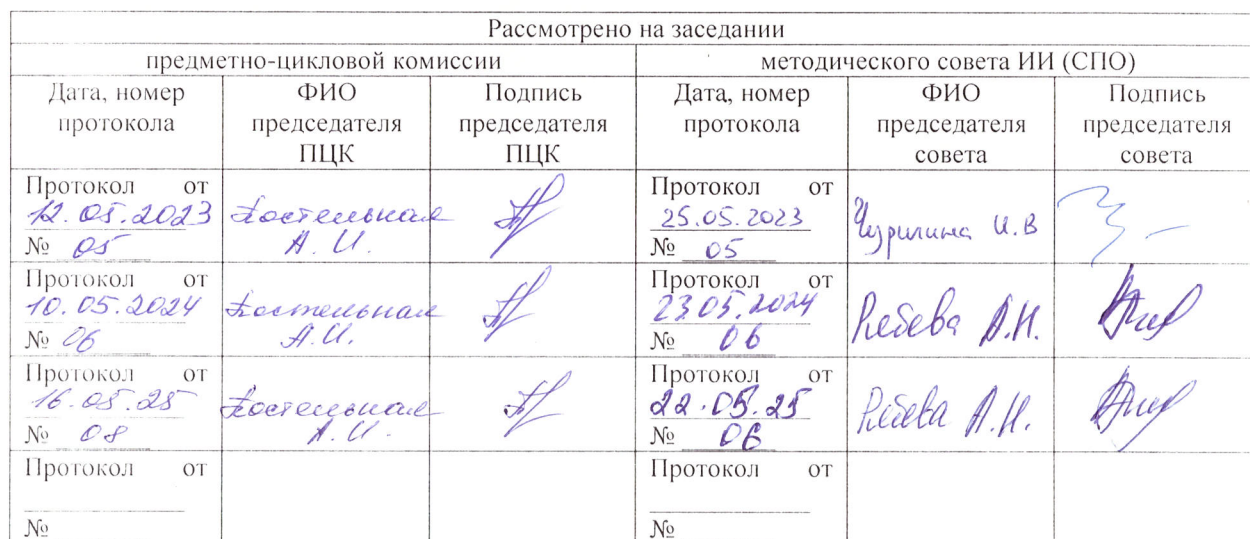 Рассмотрено на заседании
предметно-цикловой комиссии
методического совета ИИ (СПО)
Дата, номер
протокола
ФИО
председателя
ПЦК
Подпись
председателя
ПЦК
Дата, номер
протокола
ФИО
председателя
совета
Подпись
председателя
совета
Протокол от
12.05.2023
№ 05
Костельная
А. И.
Протокол от
25.05.2023
№ 05
Чурилина И.В
Протокол от
10.05.2024
№ 06
Костельная
А. И.
Протокол от
23.05.2024
№ 06
А.Н.
Протокол от
16.05.25
№ 08
Костельная
А. И.
Протокол от
22.05.25
№ 06
А.Н.
Протокол от
№
Протокол от
№